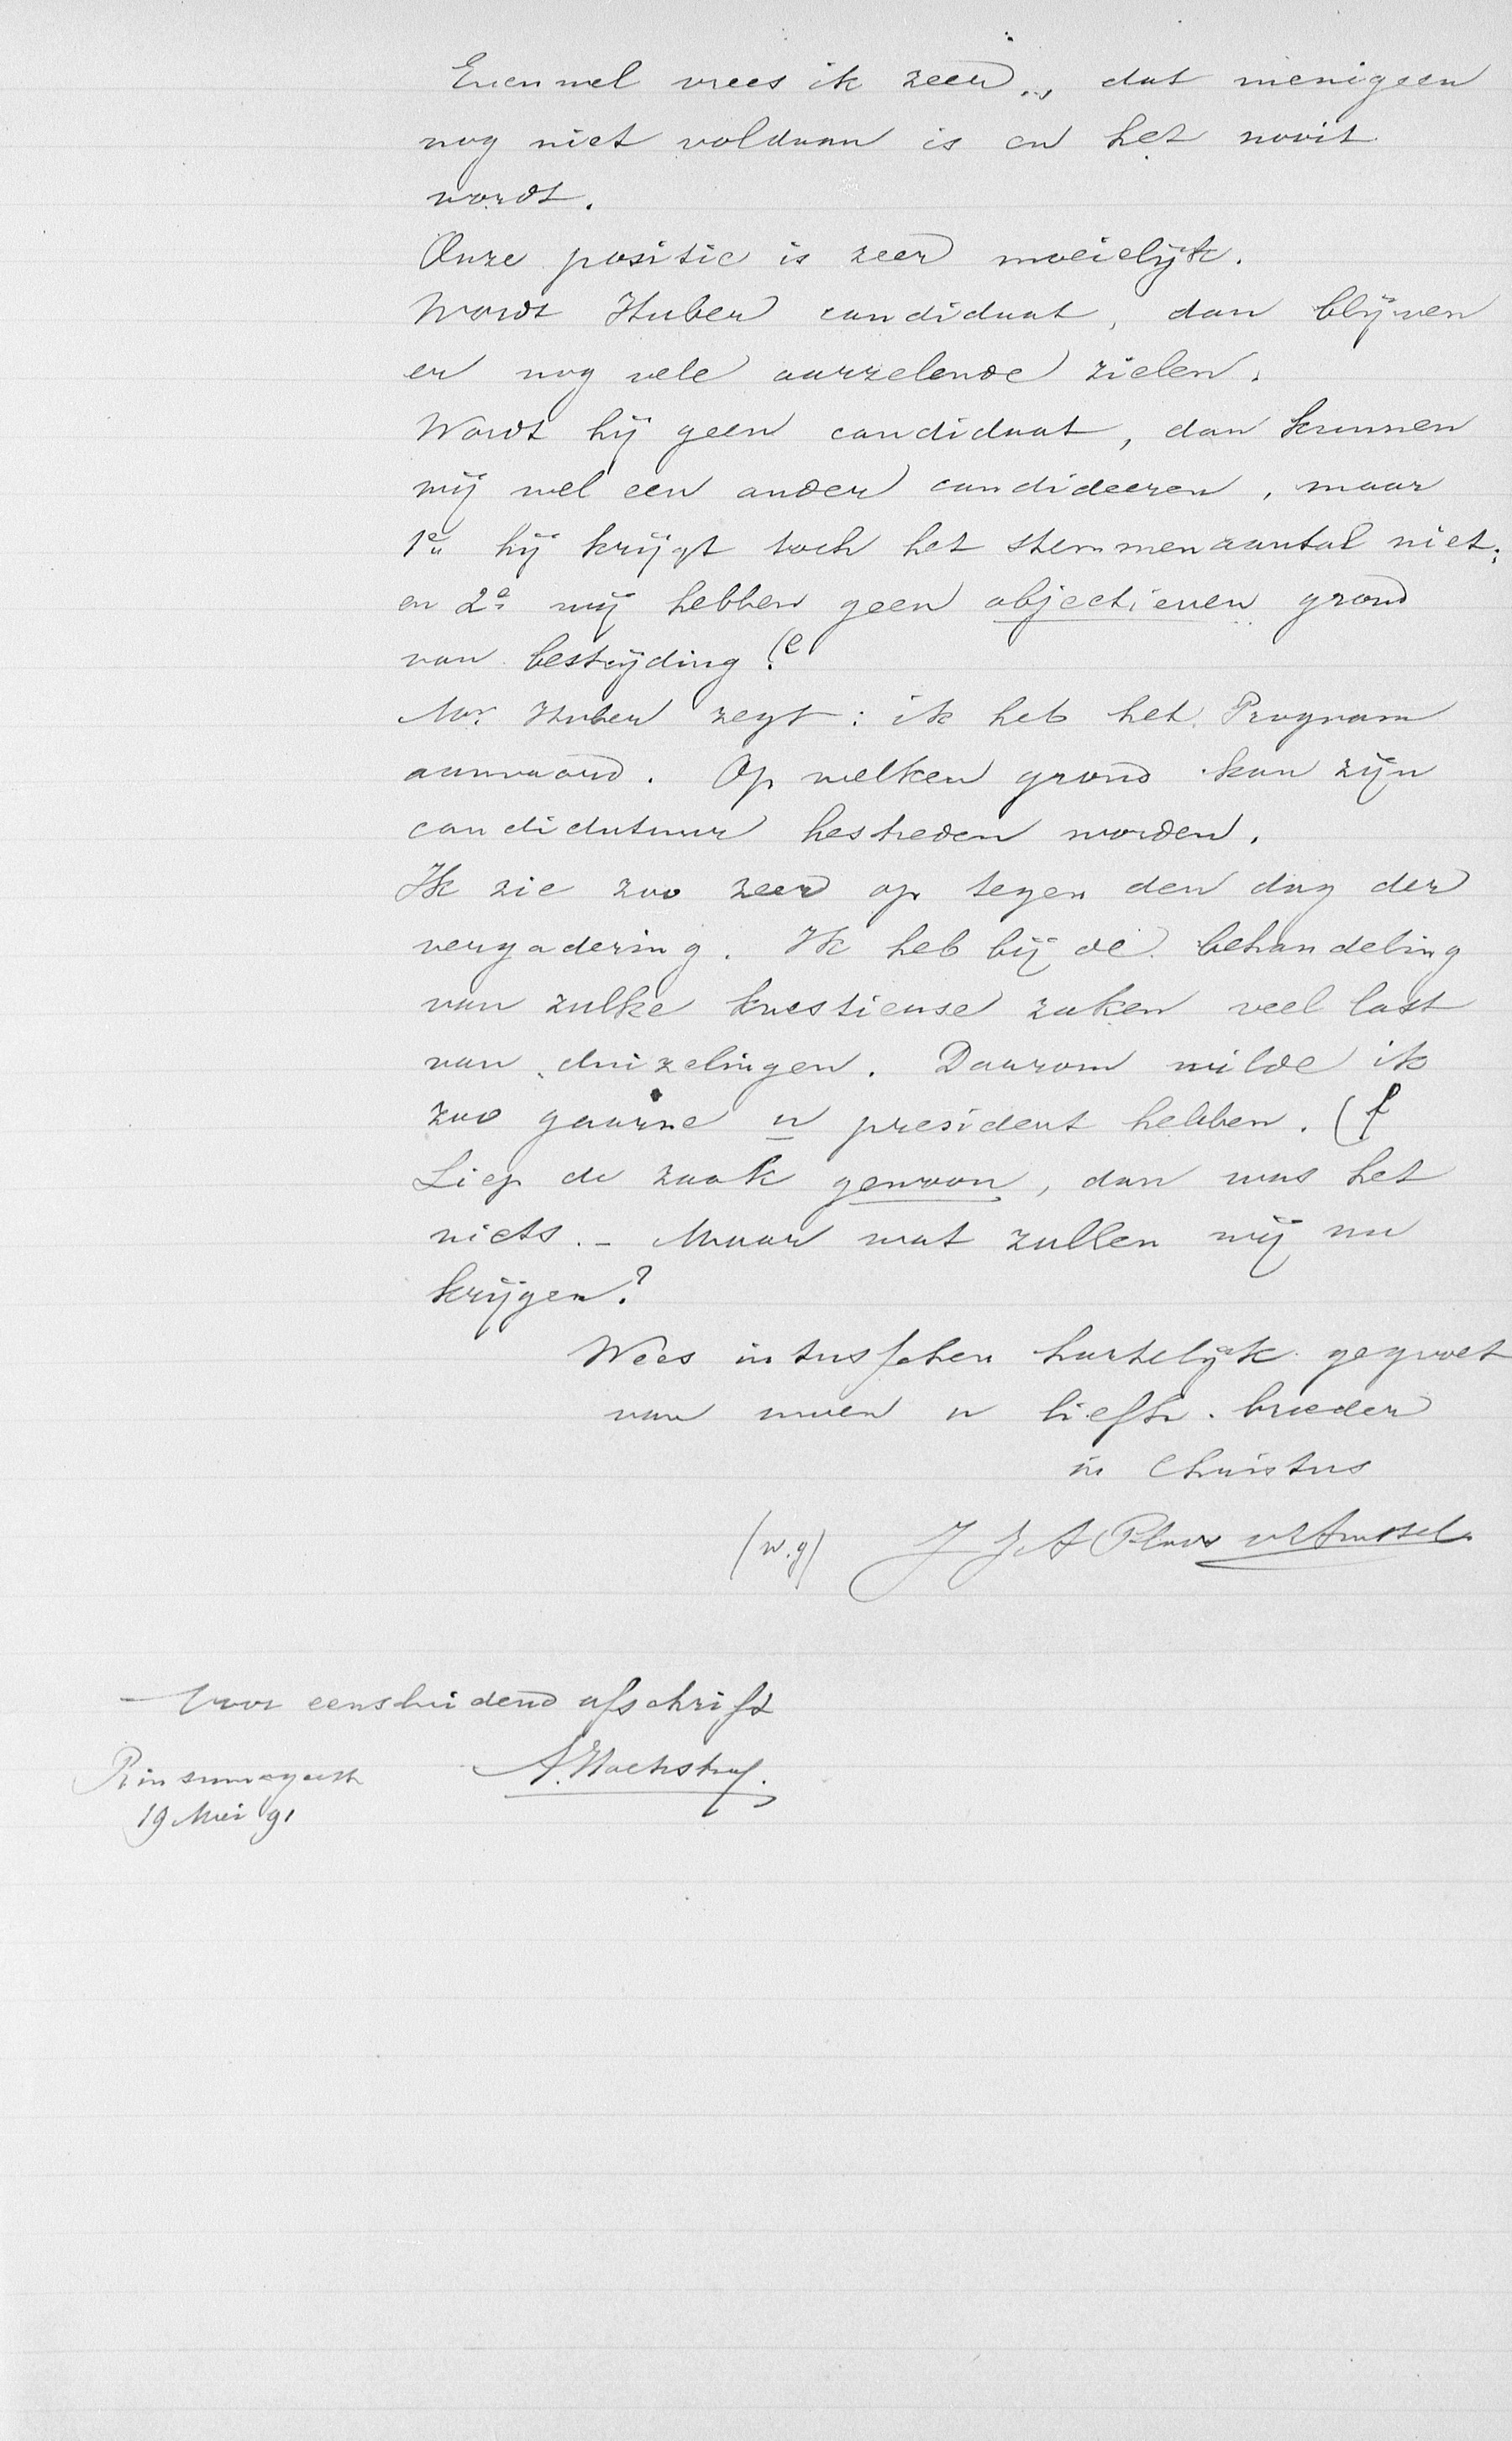 Evenwel vrees ik zeer, dat menigeen
nog niet voldaan is en het nooit
wordt.
Onze positie is zeer moeielijk.
Wordt Huber candidaat, dan blijven
er nog vele aarzelende zielen.
Wordt hij geen candidaat, dan kunnen
wij wel een ander candideeren, maar
1e hij krijgt toch het stemmenaantal niet;
en 2e wij hebben geen objectieven grond
van bestrijding. (e
Mr. Huber zegt: ik heb het Program
aanvaard. Op welken grond kan zijn
candidatuur bestreden worden.
Ik zie zoo zeer op tegen den dag der
vergadering. Ik heb bij de behandeling
van zulke kwestieuse zaken veel last
van duizelingen. Daarom wilde ik
zoo gaarne u president hebben. (f
Liep de zaak gewoon, dan was het
niets. - Maar wat zullen wij nu
krijgen?
Wees intusschen hartelijk gegroet
van uwen u liefh. broeder
in Christus
(w.g) J J A Ploos v Amstel
Voor eensluidend afschrift
Rinsumageest
19 Mei 91